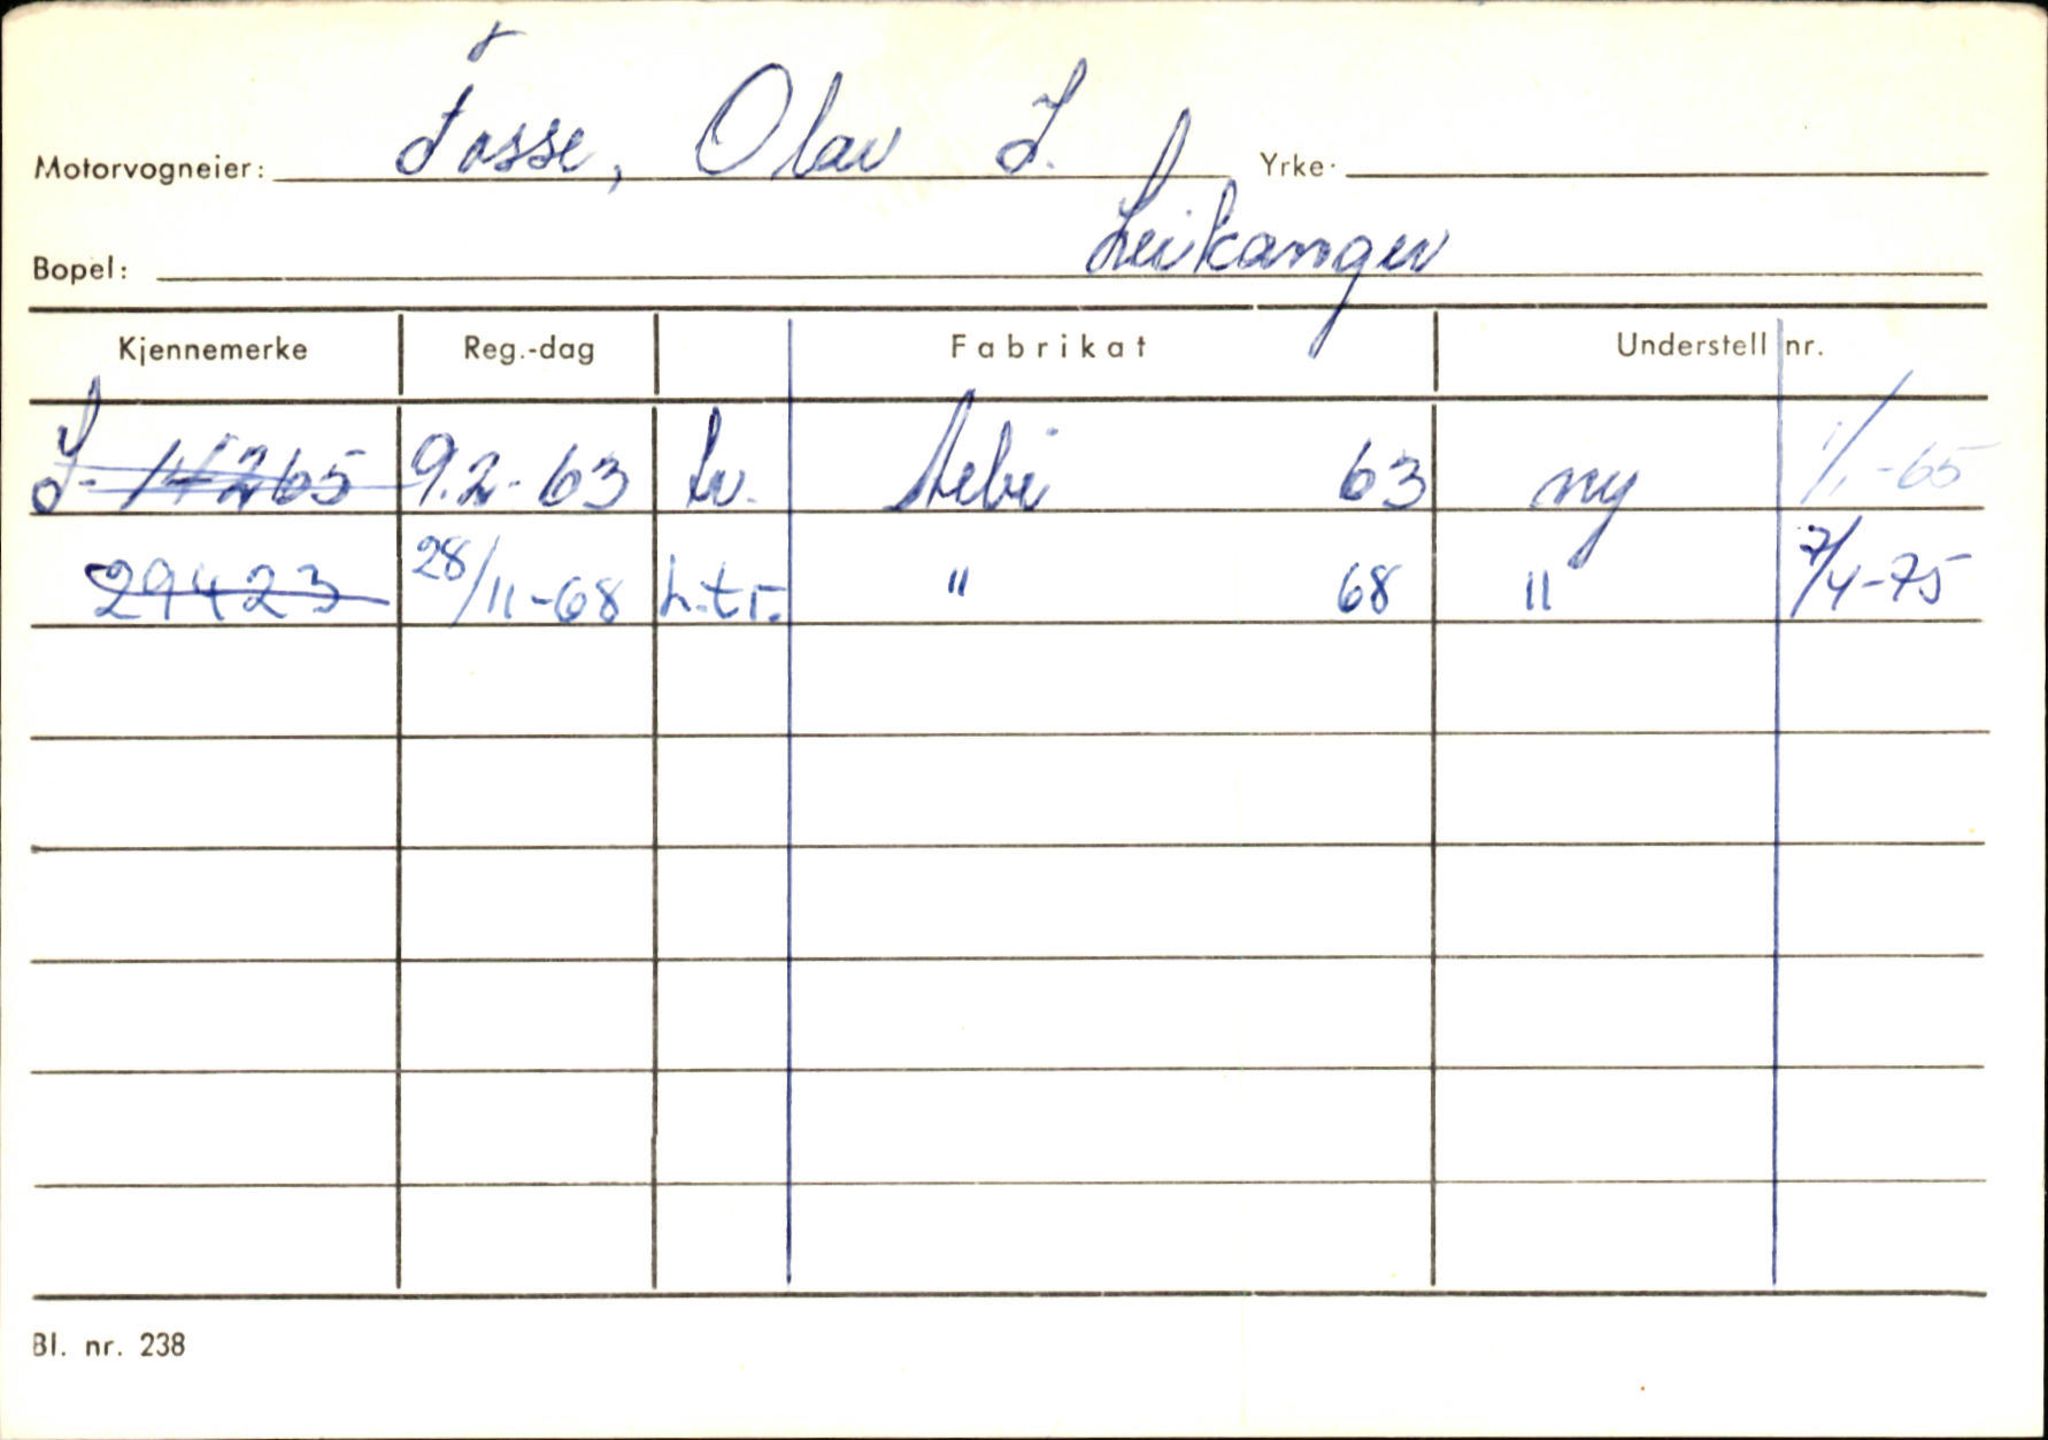 Motorvogneier: Fosse, Olav S. Yrke.
Bopel: Leikanger
Kjennemerke Reg.-dag Fabrikat Understell nr.
S-14265 9.2-63 Lv. Aebi 63 ny 1/1-65
29423 28/11-68 L.tr. " 68 " 7/4-75
Bl. nr. 238